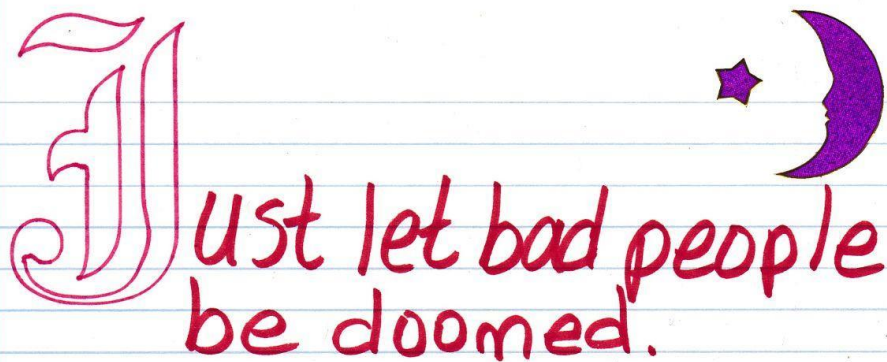 Just let bad people
be doomed.